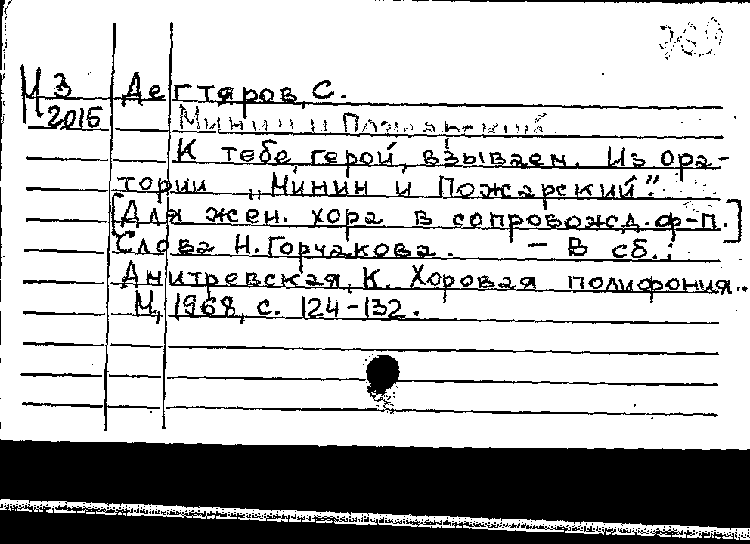 М3 Дегтяров, С.
2015 Минин и Пожарский
К тебе, герой, взываем. Из ора-
тории „Минин и Пожарский".
[Для жен. хора в сопровожд. ф-п.]
Слова Н. Горчакова. – В сб.:
Дмитревская, К. Хоровая полифония..
М, 1968, с. 124-132.